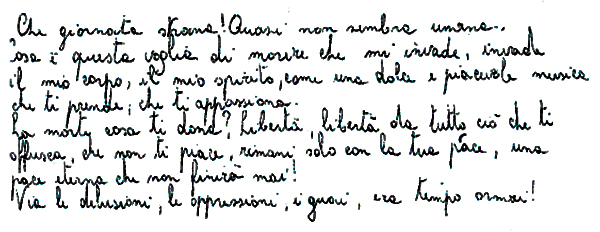 Che giornata strana! Quasi non sembra umana..
cosa è questa voglia di morire che mi invade, invade
il mio corpo, il mio spirito, come una dolce e piacevole musica
che ti prende, che ti appassiona.
La morte cosa ti dona? Libertà, libertà da tutto ciò che ti
offusca, che non ti piace, rimani solo con la tua pace, una
pace eterna che non finirà mai!
Via le delusioni, le oppressioni, i guai, era tempo ormai!